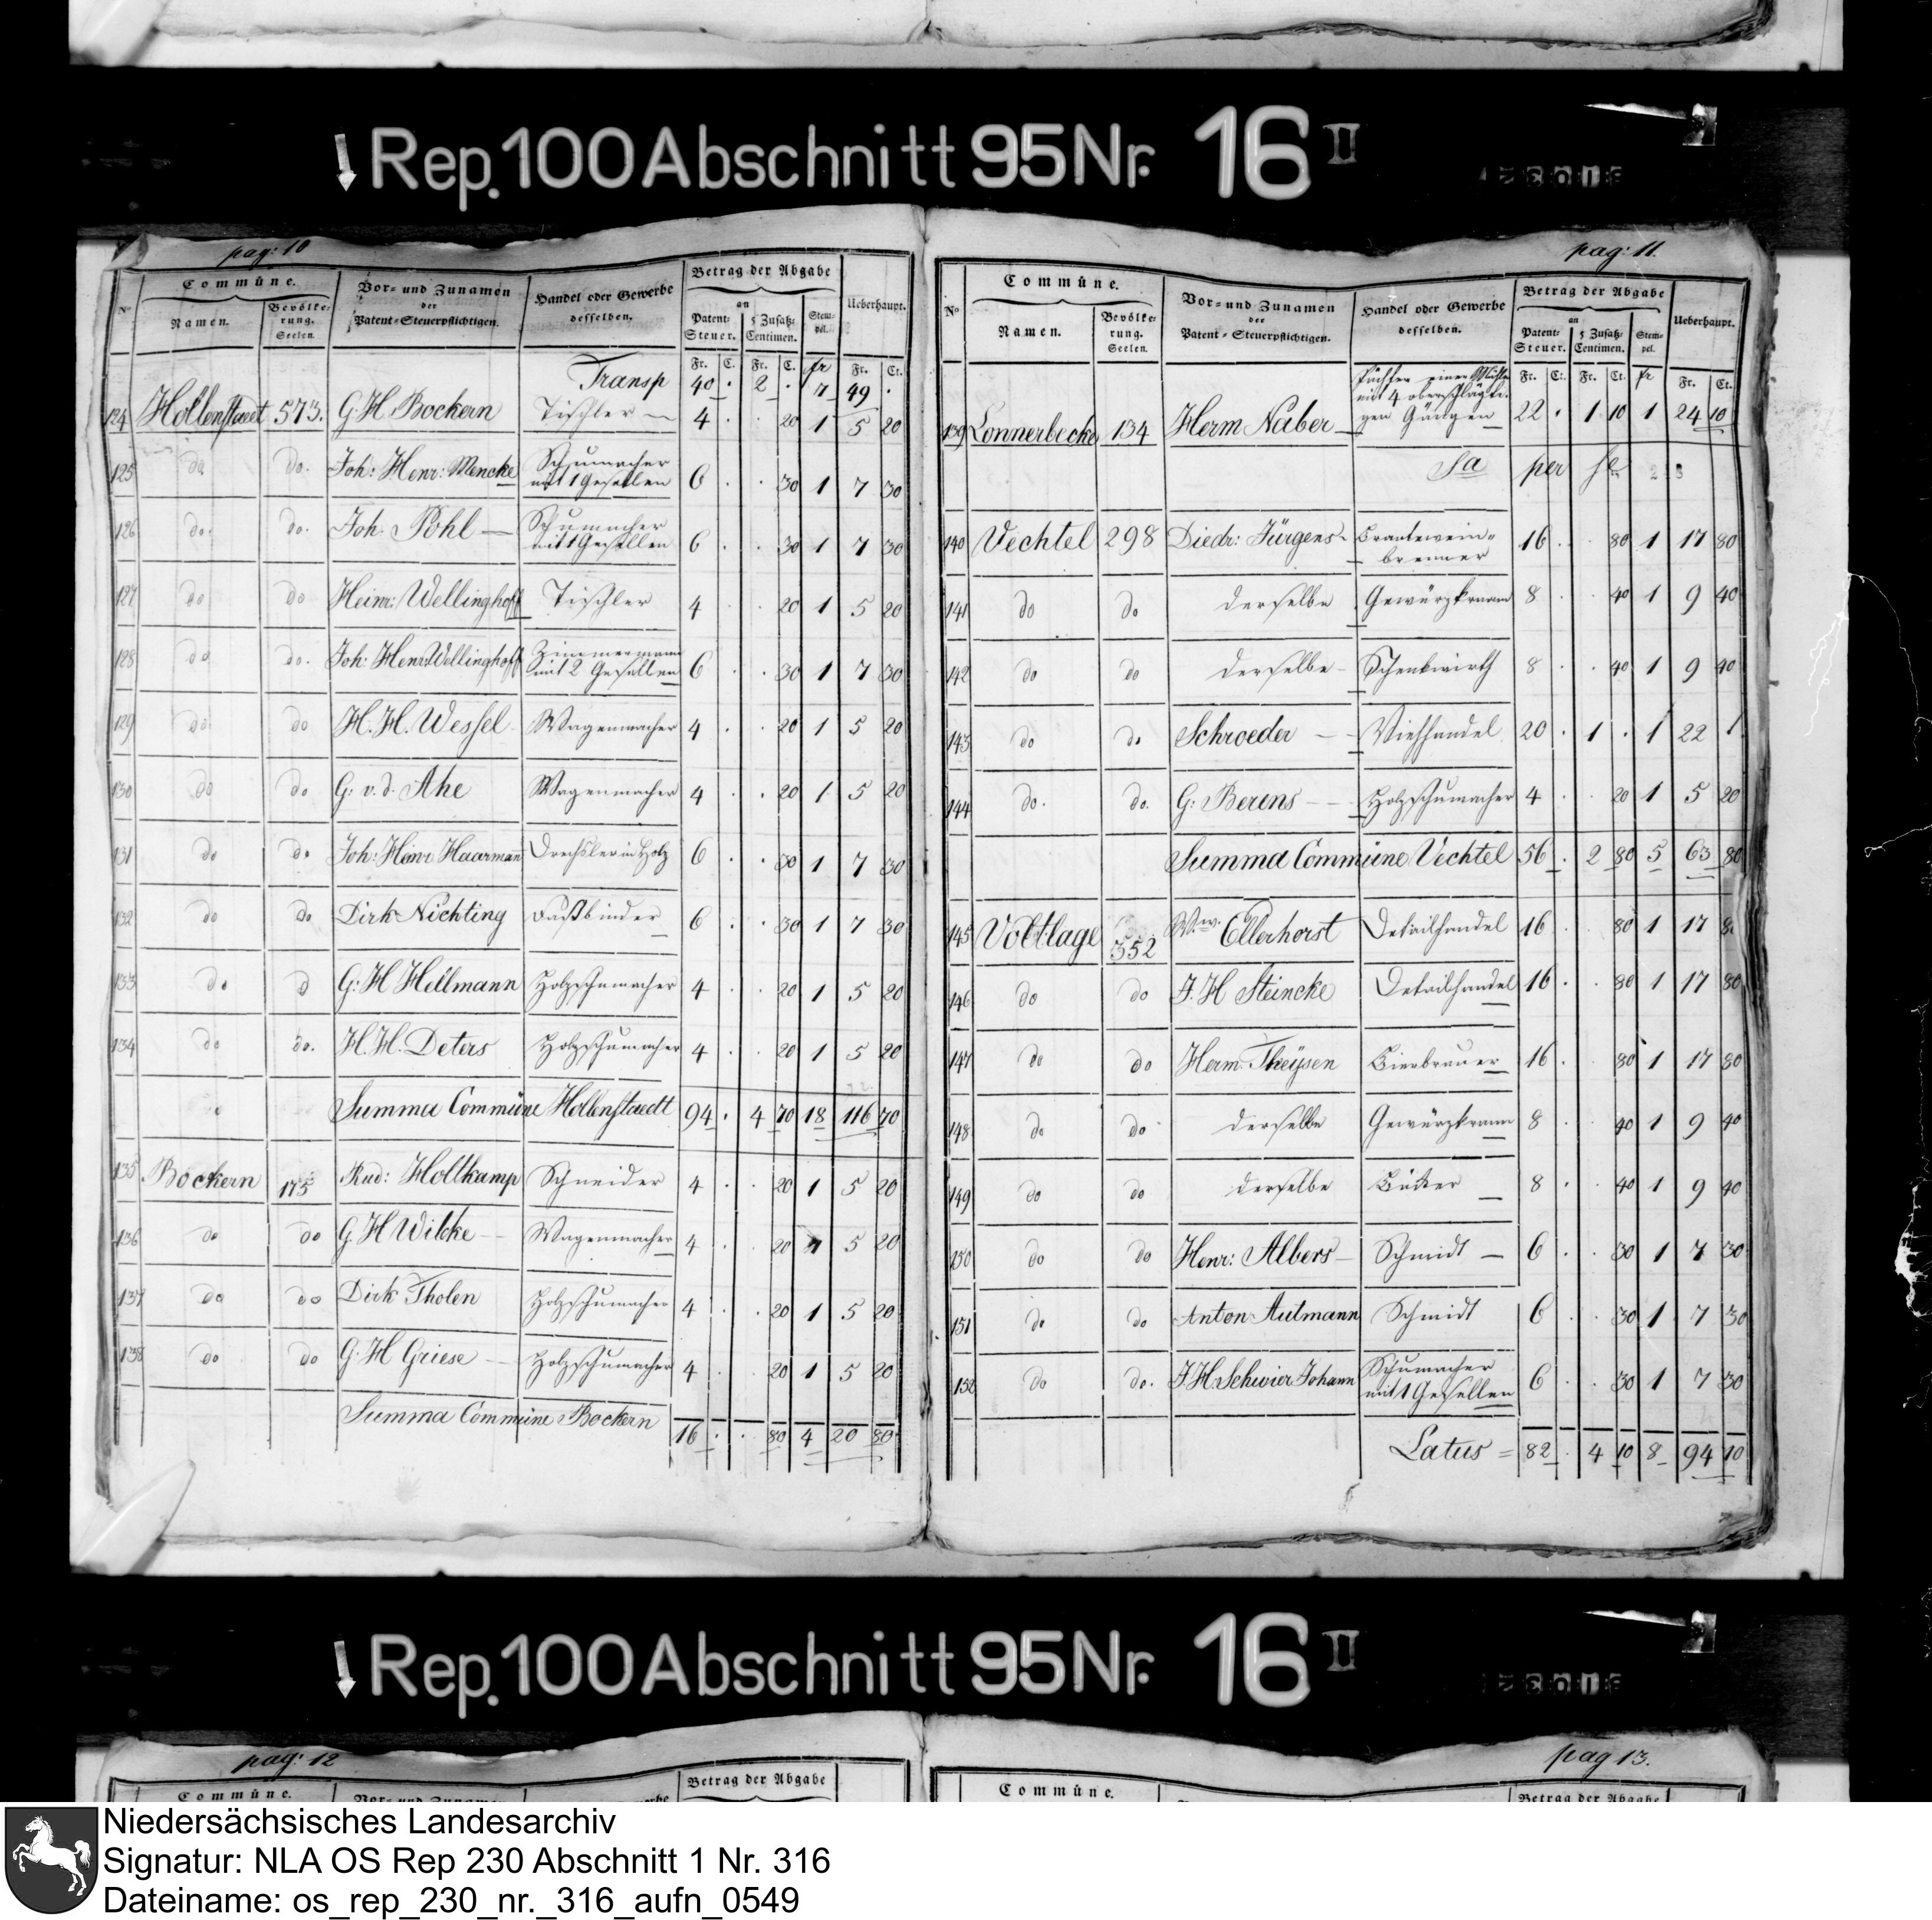 Rep. 100 Abschnitt 95 Nr. 16 II
pag: 10
Commüne.
Vor- und Zunamen
der
Patent-Steuerpflichtigen.
Handel oder Gewerbe
desselben.
Betrag der Abgabe
an
Ueberhaupt.
No
Namen.
Bevölke-
rung.
Seelen.
Patent-
Steuer.
5 Zusatz-
Centimen.
Stem-
pel.
Fr. C. Fr. C. fr Fr. Ct.
Transp 40 . 2 . 7 49 .
124 Hollenstaedt 573. G. H. Bockern Tischler 4 . . 20 1 5 20
125 do do. Joh: Henr: Mencke Schumacher
mit 1 Gesellen 6 . . 30 1 7 30
126 do. do. Joh. Pohl Schumacher
mit 1 Gesellen 6 . . 30 1 7 30
127 do do Heinr: Wellinghoff Tischler 4 . . 20 1 5 20
128 do do. Joh: Henr: Wellinghoff Zimmermann
mit 2 Gesellen 6 . . 30 1 7 30
129 do do H. H. Wessel Wagenmacher 4 . . 20 1 5 20
130 do do G: v. d. Ahe Wagenmacher 4 . . 20 1 5 20
131 do do Joh: Heinr Haarmann Drechsler in Holz 6 . . 30 1 7 30
132 do do Dirk Nüchting Faßbinder 6 . . 30 1 7 30
133 do d G: H Hellmann Holzschumacher 4 . . 20 1 5 20
134 do do. H. H. Deters Holzschumacher 4 . . 20 1 5 20
Summa Commüne Hollenstaedt 94 . 4 70 18 116 70
135 Bockern 175 Rud: Holtkamp Schneider 4 . . 20 1 5 20
136 do do G. H Wilcke Wagenmacher 4 . . 20 1 5 20
137 do do Dirk Tholen Holzschumacher 4 . . 20 1 5 20
138 do do G. H Griese Holzschumacher 4 . . 20 1 5 20
Summa Commüne Bockern 16 . . 80 4 20 80
pag: 11.
Commüne.
Vor- und Zunamen
der
Patent-Steuerpflichtigen.
Handel oder Gewerbe
desselben.
Betrag der Abgabe
an
Ueberhaupt.
No
Namen.
Bevölke-
rung.
Seelen.
Patent-
Steuer.
5 Zusatz-
Centimen.
Stem-
pel.
Fr. C. Fr. Ct. fr Fr. Ct.
Pächter einer Mühle
mit 4 oberschlägti-
139 Lonnerbecke 134 Herm Naber gen Gängen 22 . 1 10 1 24 10
Sa per se
140 Vechtel 298 Diedr: Jürgens Brantewein-
brenner 16 . . 80 1 17 80
141 do do derselbe Gewürzkram 8 . . 40 1 9 40
142 do do derselbe Schenkwirth 8 . . 40 1 9 40
143 do do Schroeder Viehhandel 20 . 1 . 1 22
144 do. do. G: Berens Holzschumacher 4 . . 20 1 5 20
Summa Commüne Vechtel 56 . 2 80 5 63 80
145 Voltlage 352 Ww. Ellerhorst Detailhandel 16 . . 80 1 17 80
146 do do J. H Steincke Detailhandel 16 . . 80 1 17 80
147 do do Herm. Theysen Bierbrauer 16 . . 80 1 17 80
148 do do derselbe Gewürzkram 8 . . 40 1 9 40
149 do do derselbe Bäcker 8 . . 40 1 9 40
150 do do Henr: Albers Schmidt 6 . . 30 1 7 30
151 do do Anton Autmann Schmidt 6 . . 30 1 7 30
152 do do. J H. Schwier Johann Schumacher
mit 1 Gesellen 6 . . 30 1 7 30
Latus = 82 . 4 10 8 94 10
Rep. 100 Abschnitt 95 Nr. 16 II
pag: 12
Commüne.
Betrag der Abgabe
pag 13.
Commüne.
Betrag der Abgabe
Niedersächsisches Landesarchiv
Signatur: NLA OS Rep 230 Abschnitt 1 Nr. 316
Dateiname: os_rep_230_nr._316_aufn_0549